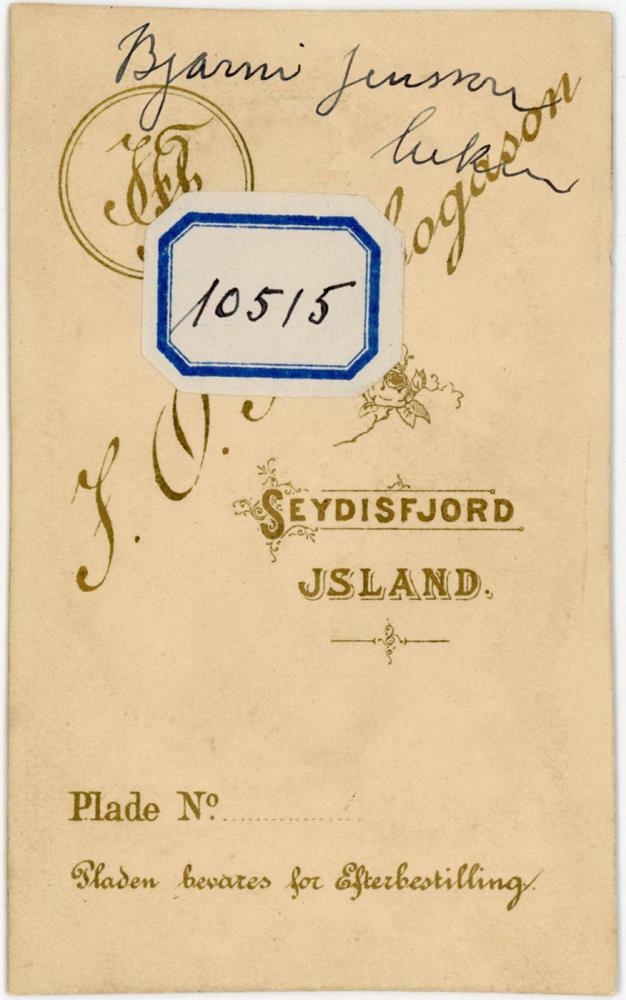 Bjarni Jensson
10515
J. O.
SEYDISFJORD
JSLAND.
Plade No.
Pladen bevares for Efterbestilling.